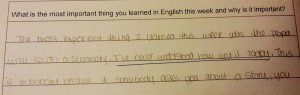 What is the most important thing you learned in English this week and why is it important?
The most important thing I learned this week was the proper
way to do a summary. I've never understood how until today. This
is important because if somebody asks you about a story, you